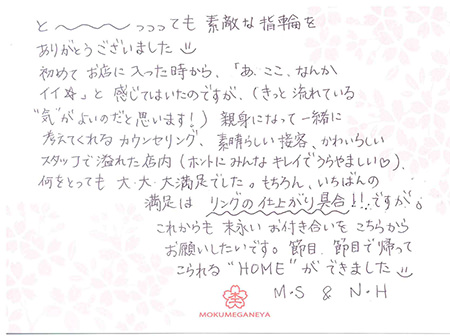 と〜〜〜っっっても 素敵な指輪を
ありがとうございました
初めてお店に入った時から、「あ、ここ、なんか
イイ☆」と 感じてはいたのですが、(きっと流れている
"気"がよいのだと思います!) 親身になって一緒に
考えてくれるカウンセリング、素晴らしい接客、かわいらしい
スタッフで溢れた店内(ホントにみんなキレイでうらやましい♡)、
何をとっても 大・大・大満足でした。もちろん、いちばんの
満足は リングの仕上がり具合!!ですが。
これからも 末永い お付き合いを こちらから
お願いしたいです。節目、節目で帰って
こられる"HOME"ができました
M・S & N・H
MOKUMEGANEYA